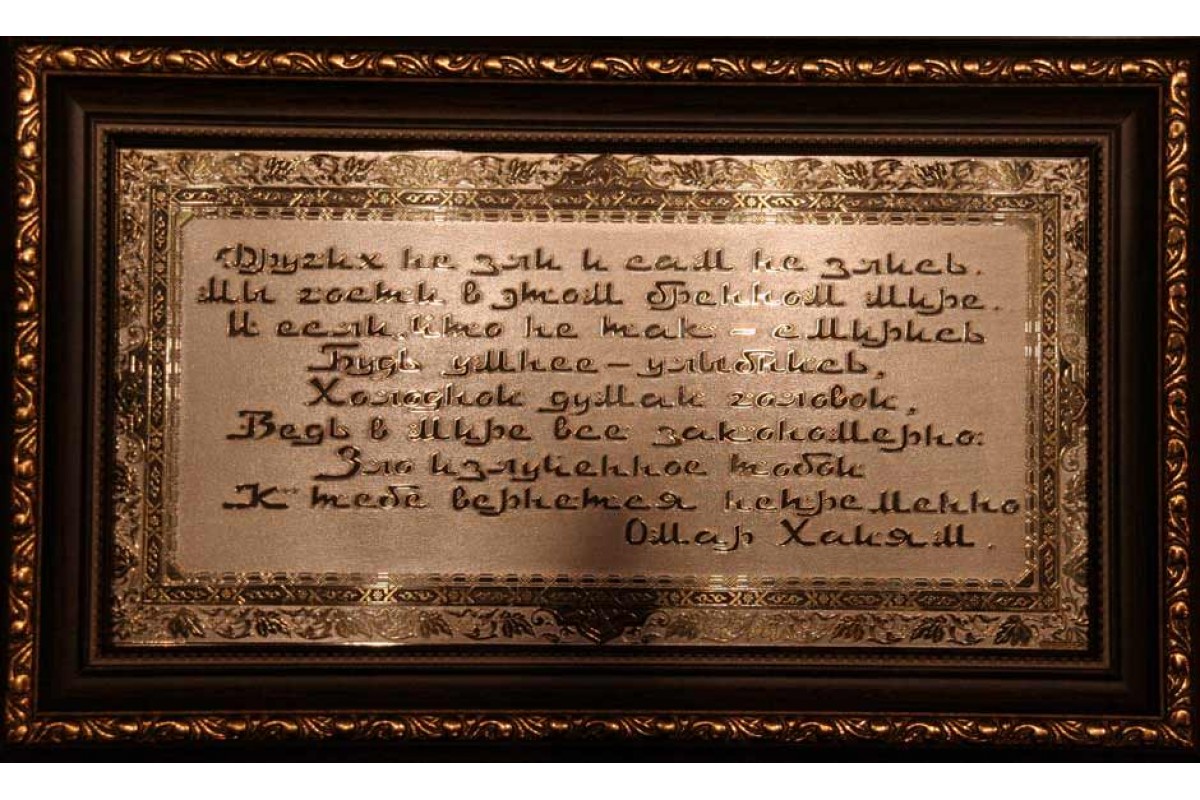 Других не зли и сам не злись.
Мы гости в этом бренном мире.
И если, что не так - смирись
Будь умнее - улыбнись,
Холодной думай головой,
Ведь в мире все закономерно:
Зло излученное тобой
К тебе вернется непременно
Омар Хайям.